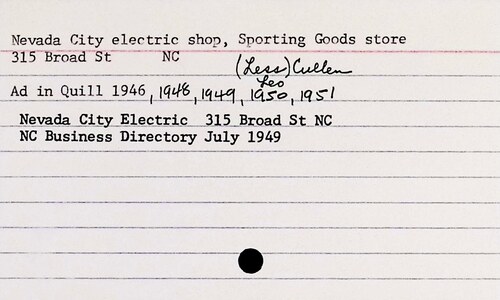 Nevada City electric shop, Sporting Goods store
315 Broad St NC
(Less) Cullen
Leo
Ad in Quill 1946, 1948, 1949, 1950, 1951
Nevada City Electric 315 Broad St NC
NC Business Directory July 1949